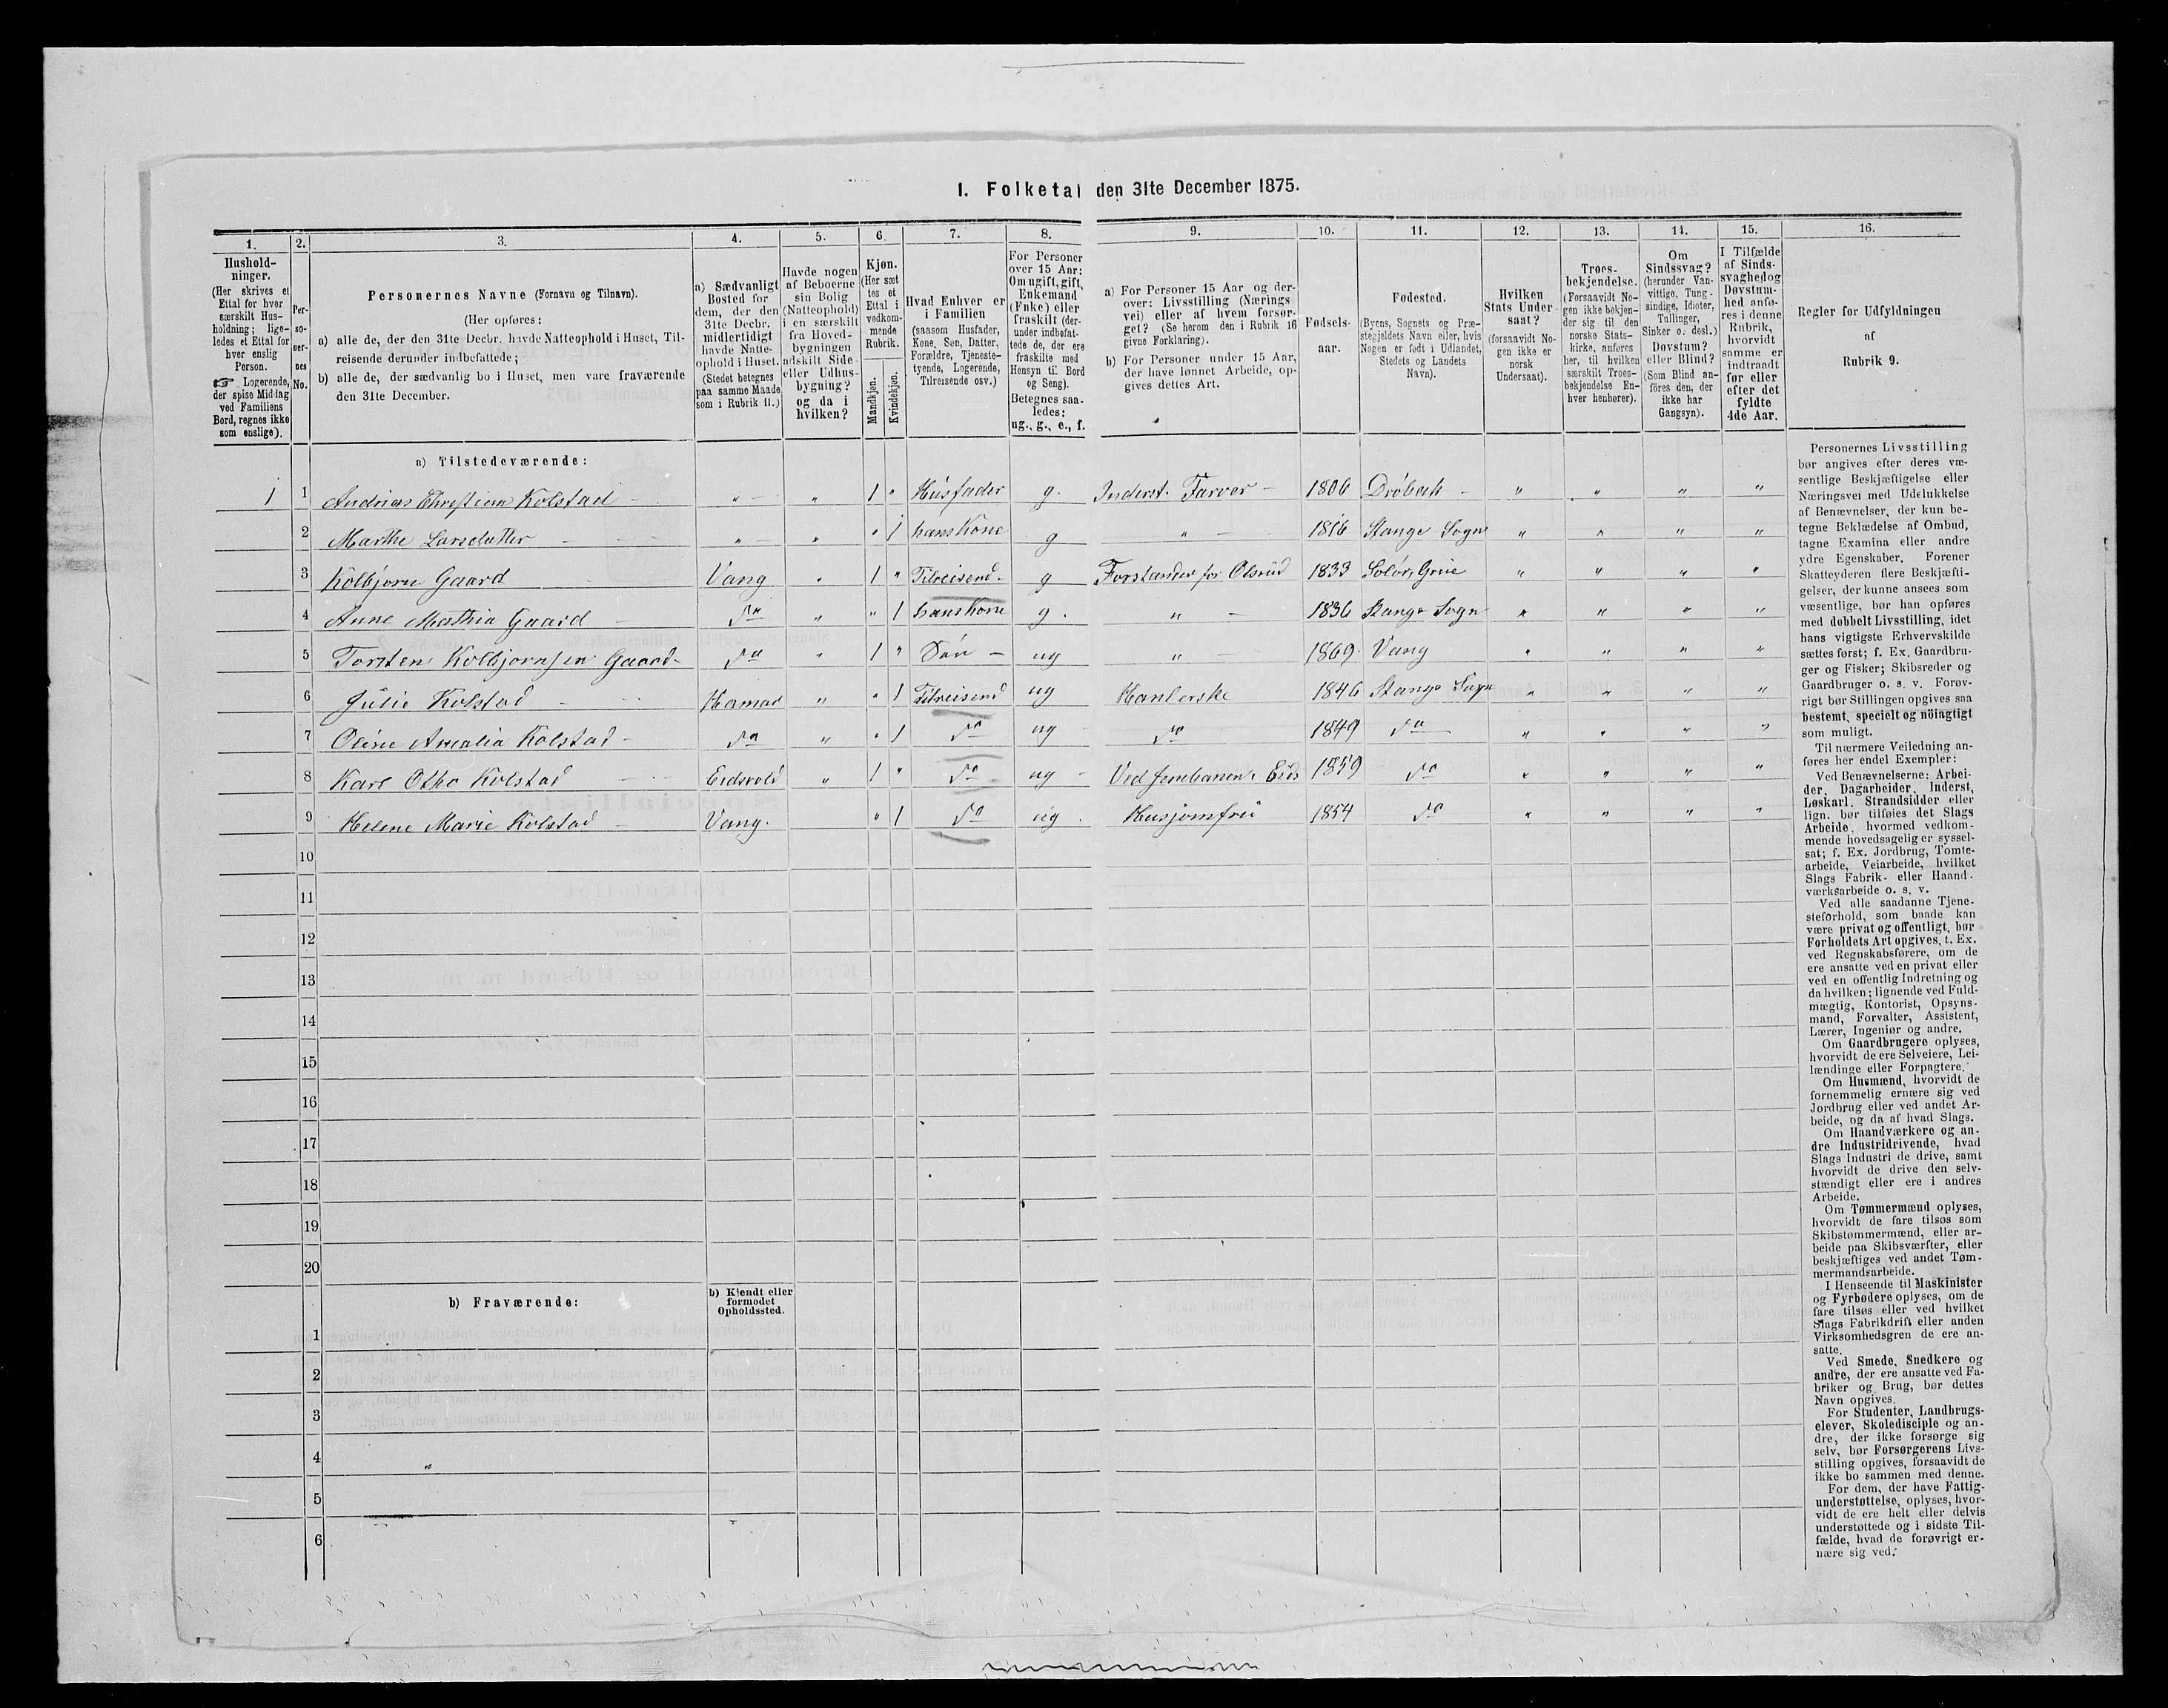 1. Folketal den 31te December 1875.
1. 2. 3. 4. 5. 6. 7. 8. 9. 10. 11. 12. 13. 14. 15. 16.
Hushold-
ninger.
(Her skrives et
Ettal for hver
særskilt Hus-
holdning; lige-
ledes et Ettal for
hver enslig
Person.
☞ Logerende,
der spise Middag
ved Familiens
Bord, regnes ikke
som enslige).
Per-
so-
ner-
nes
No.
Personernes Navne (Fornavn og Tilnavn).
(Her opføres:
a) alle de, der den 31te Decbr. havde Natteophold i Huset, Til-
reisende derunder indbefattede;
b) alle de, der sædvanlig bo i Huset, men vare fraværende
den 31te December.
a) Sædvanligt
Bosted for
dem, der den
31te Decbr.
midlertidigt
havde Natte-
ophold i Huset.
(Stedet betegnes
paa samme Maade
som i Rubrik 11.)
Havde nogen
af Beboerne
sin Bolig
(Natteophold)
i en særskilt
fra Hoved-
bygningen
adskilt Side-
eller Udhus-
bygning?
og da i
hvilken?
Kjøn.
(Her sæt
tes et
Ettal i
vedkom-
mende
Rubrik.
Mandkjøn.
Kvindekjøn.
Hvad Enhver er
i Familien
(saasom Husfader,
Kone, Søn, Datter,
Forældre, Tjeneste-
tyende, Logerende,
Tilreisende osv.)
For Personer
over 15 Aar:
Om ugift, gift,
Enkemand
(Enke) eller
fraskilt (der-
under indbefat-
tede de, der ere
fraskilte med
Hensyn til Bord
og Seng).
Betegnes saa-
ledes:
ug., g., e., f.
a) For Personer 15 Aar og der-
over: Livsstilling (Nærings
vei) eller af hvem forsør-
get? (Se herom den i Rubrik 16
givne Forklaring).
b) For Personer under 15 Aar,
der have lønnet Arbeide, op-
gives dettes Art.
Fødsels-
aar.
Fødested.
(Byens, Sognets og Præ-
stegjeldets Navn eller, hvis
Nogen er født i Udlandet,
Stedets og Landets
Navn).
Hvilken
Stats Under-
saat?
(forsaavidt No-
gen ikke er
norsk
Undersaat).
Troes-
bekjendelse.
(Forsaavidt No-
gen ikke bekjen-
der sig til den
norske Stats-
kirke, anføres
her, til hvilken
særskilt Troes-
bekjendelse En-
hver henhører).
Om
Sindssvag?
(herunder Van-
vittige, Tung-
sindige, Idioter,
Tullinger,
Sinker o. desl.)
Døvstum?
eller Blind?
(Som Blind an-
føres den, der
ikke har
Gangsyn).
I Tilfælde
af Sinds-
svaghed og
Døvstum-
hed anfø-
res i denne
Rubrik,
hvorvidt
samme er
indtraadt
før eller
efter det
fyldte
4de Aar.
Regler for Udfyldningen
af
Rubrik 9.
a) Tilstedeværende:
1 1 Andreas Christian Kolstad — " — " 1 " Husfader g. Inderst. Farver — 1806 Dröbak — " " " "
2 Marthe Larsdatter — " — " " 1 hans Kone g " — 1816 Stange Sogn " " " "
3 Kolbjørn Gaard Vang " 1 " Tilreisend. g Forstander for Olsrud 1833 Solör, Grue " " " "
4 Anne Mathia Gaard — do " " 1 hans Kone g. " — 1836 Stange Sogn " " " "
5 Torsten Kolbjørnsen Gaard — do " 1 " Søn — ug " — 1869 Vang " " " "
6 Julie Kolstad Hamar " " 1 Tilreisend ug Hanlerske 1846 Stange Sogn " " " "
7 Oline Amalia Kolstad — do " " 1 do ug do 1849 do " " " "
8 Karl Otho Kolstad — Eidsvold " 1 " do ug — Ved Jernbanen i Eids 1859 do " " " "
9 Helene Marie Kolstad — Vang. " 1 do ug. Husjomfru 1854 do " " " "
10
11
12
13
14
15
16
17
18
19
20
b) Fraværende:
b) Kjendt eller
formodet
Opholdssted.
1
2
3
4 "
5
6
Personernes Livsstilling
bør angives efter deres væ-
sentlige Beskjæftigelse eller
Næringsvei med Udelukkelse
af Benævnelser, der kun be-
tegne Beklædelse af Ombud,
tagne Examina eller andre
ydre Egenskaber. Forener
Skatteyderen flere Beskjæfti-
gelser, der kunne ansees som
væsentlige, bør han opføres
med dobbelt Livsstilling, idet
hans vigtigste Erhvervskilde
sættes først; f. Ex. Gaardbru-
ger og Fisker; Skibsreder og
Gaardbruger o. s. v. Forøv-
rigt bør Stillingen opgives saa
bestemt, specielt og nöiagtigt
som muligt.
Til nærmere Veiledning an-
føres her endel Exempler:
Ved Benævnelserne: Arbei-
der, Dagarbeider, Inderst,
Løskarl, Strandsidder eller
lign. bør tilføies det Slags
Arbeide, hvormed vedkom-
mende hovedsagelig er syssel-
sat; f. Ex. Jordbrug, Tomte-
arbeide, Veiarbeide, hvilket
Slags Fabrik- eller Haand-
værksarbeide o. s. v.
Ved alle saadanne Tjene-
steforhold, som baade kan
være privat og offentligt, bør
Forholdets Art opgives, t. Ex.
ved Regnskabsførere, om de
ere ansatte ved en privat eller
ved en offentlig Indretning og
da hvilken; lignende ved Fuld-
mægtig, Kontorist, Opsyns-
mand, Forvalter, Assistent,
Lærer, Ingeniør og andre.
Om Gaardbrugere oplyses,
hvorvidt de ere Selveiere, Lei-
lændinge eller Forpagtere.
Om Husmænd, hvorvidt de
fornemmelig ernære sig ved
Jordbrug eller ved andet Ar-
beide, og da af hvad Slags.
Om Haandværkere og an-
dre Industridrivende, hvad
Slags Industri de drive, samt
hvorvidt de drive den selv-
stændigt eller ere i andres
Arbeide.
Om Tømmermænd oplyses,
hvorvidt de fare tilsøs som
Skibstømmermænd, eller ar-
beide paa Skibsværfter, eller
beskjæftiges ved andet Tøm-
mermandsarbeide.
I Henseende til Maskinister
og Fyrbødere oplyses, om de
fare tilsøs eller ved hvilket
Slags Fabrikdrift eller anden
Virksomhedsgren de ere an-
satte.
Ved Smede, Snedkere og
andre, der ere ansatte ved Fa-
briker og Brug, bør dettes
Navn opgives.
For Studenter, Landbrugs-
elever, Skoledisciple og an-
dre, der ikke forsørge sig
selv, bør Forsørgerens Livs-
stilling opgives, forsaavidt de
ikke bo sammen med denne.
For dem, der have Fattig-
understøttelse, oplyses, hvor-
vidt de ere helt eller delvis
understøttede og i sidste Til-
fælde, hvad de forøvrigt er-
nære sig ved.